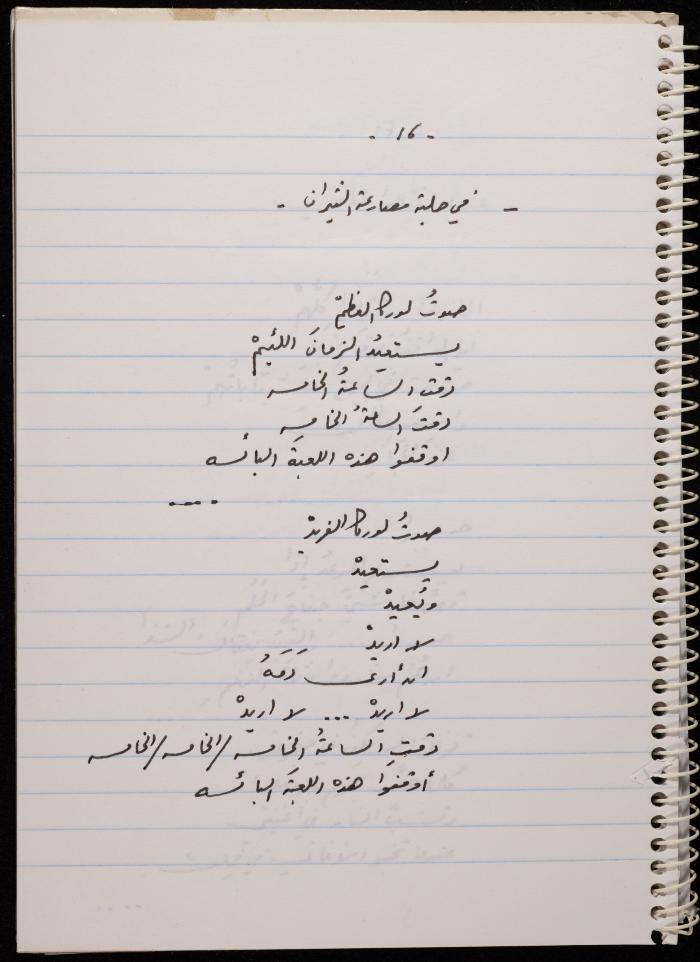 - 16 -
- في حلبة مصارعة الثيران -
صوتُ لوركا العظيمْ
يستعيدُ الزمانَ اللئيمْ
دقتِ الساعةُ الخامسه
دقتِ الساعةُ الخامسه
اوقفوا هذه اللعبةَ البائسه
....
صوتُ لوركا الفريدْ
يستعيدْ
ويُعيدْ
لا اريدْ
ان أرى دَمَهُ
لا اريدْ ... لا اريدْ
دقتِ الساعةُ الخامسه/الخامسه/الخامسه
أوقفوا هذه اللعبةَ البائسه